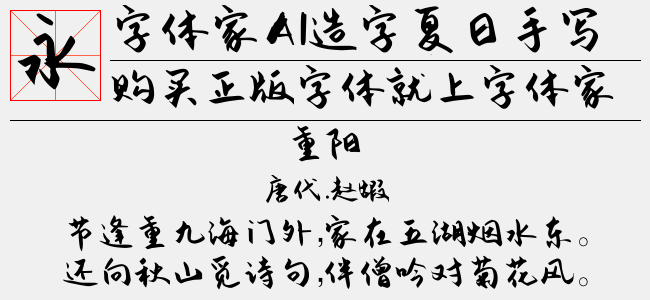 永
字体家AI造字夏日手写
购买正版字体就上字体家
重阳
唐代.赵嘏
节逢重九海门外,家在五湖烟水东。
还向秋山觅诗句,伴僧吟对菊花风。